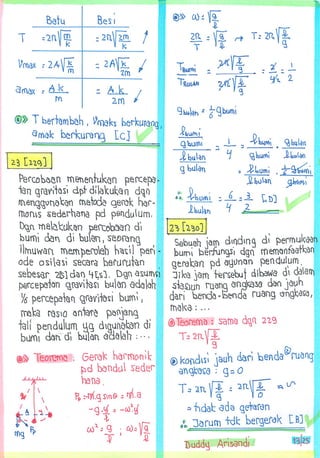 Batu Besi
T = 2π√m/k = 2π√2m/k
Vmax = 2A√k/m = 2A√k/2m
amax = A.k/m = A.k/2m
T bertambah, Vmaks berkurang,
amak berkurang [C]
23 [229]
Percobaan menentukan percepa-
tan gravitasi dpt dilakukan dgn
menggunakan metode gerak har-
monis sederhana pd pendulum.
Dgn melakukan percobaan di
bumi dan di bulan, seorang
ilmuwan memperoleh hasil peri-
ode osilasi secara berurutan
sebesar 2s dan 4s. Dgn asumsi
percepatan gravitasi bulan adalah
1/6 percepatan gravitasi bumi,
maka rasio antara panjang
tali pendulum yg digunakan di
bumi dan di bulan adalah : ...
Teorema : Gerak harmonik
pd bandul seder
hana.
mg
ω² = g/l ; ω = √g/l
ω = √g/l
2π/T = √g/l → T = 2π√l/g
Tbumi
Tbulan
gbulan = 1/6 gbumi
lbumi
gbumi
lbulan
gbulan
= 1/4
∴ lbumi/lbulan = 6/4 = 3/2 [D]
23 [230]
Sebuah jam dinding di permukaan
bumi berfungsi dgn memanfaatkan
gerakan pd ayunan pendulum.
Jika jam tersebut dibawa di dalam
stasiun ruang angkasa dan jauh
dari benda-benda ruang angkasa,
maka : ...
Teorema : sama dgn 229
T = 2π√l/g
kondisi jauh dari benda² ruang
angkasa : g = 0
T = 2π√l/g = 2π√l/0 = ∞
= tidak ada getaran
∴ Jarum tdk bergerak [B]
Duddy Arisandi